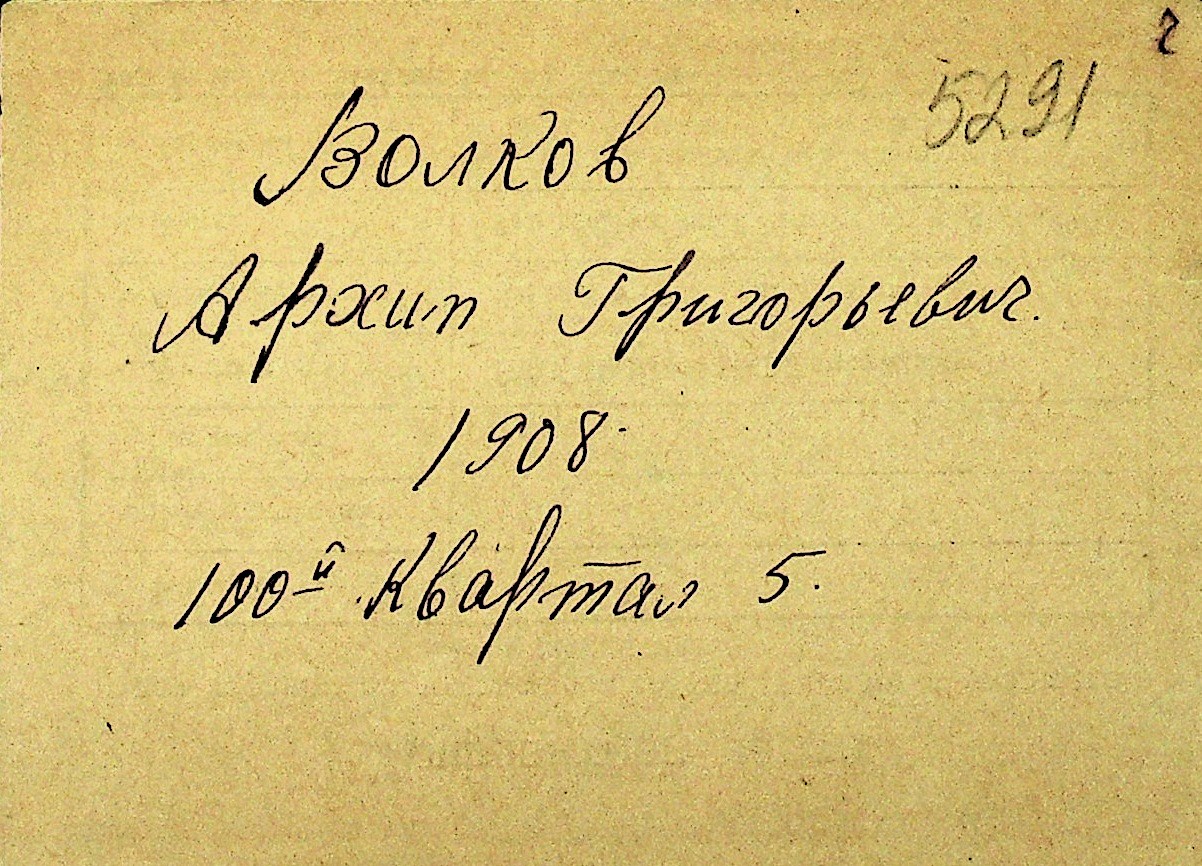 5291
Волков
Архип Григорьевич.
1908.
100й Квартал 5.